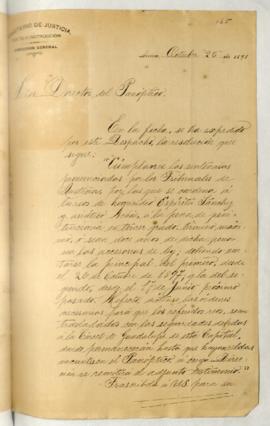 MINISTERIO DE JUSTICIA
DIRECCION GENERAL
165
Lima, Octubre 26 de 1898
Señor Director del Panóptico.
En la fecha, se ha expedido
por este Despacho, la resolución que
sigue:
"Cúmplanse las sentencias
pronunciadas por los Tribunales de
Justicia, por las que se condena á
los reos de homicidio Espíritu Sánchez
y Andrés á la pena de peni-
tenciaría en tercer grado, término máxi-
mo, ó sean dos años de dicha pena
con las accesorias de ley; debiendo con-
tarse la principal del primero, desde
el 20 de Octubre de 1897, y la del se-
gundo, desde el 17 de Junio próximo
pasado. las órdenes
necesarias para que los referidos reos, sean
trasladados con las seguridades debidas
á la Cárcel de Guadalupe de esta Capital,
donde permanecerán hasta que haya celdas
en el Panóptico, á cuya Direc-
ción se remitirá el adjunto testimonio."
Trascríbola á US. para su